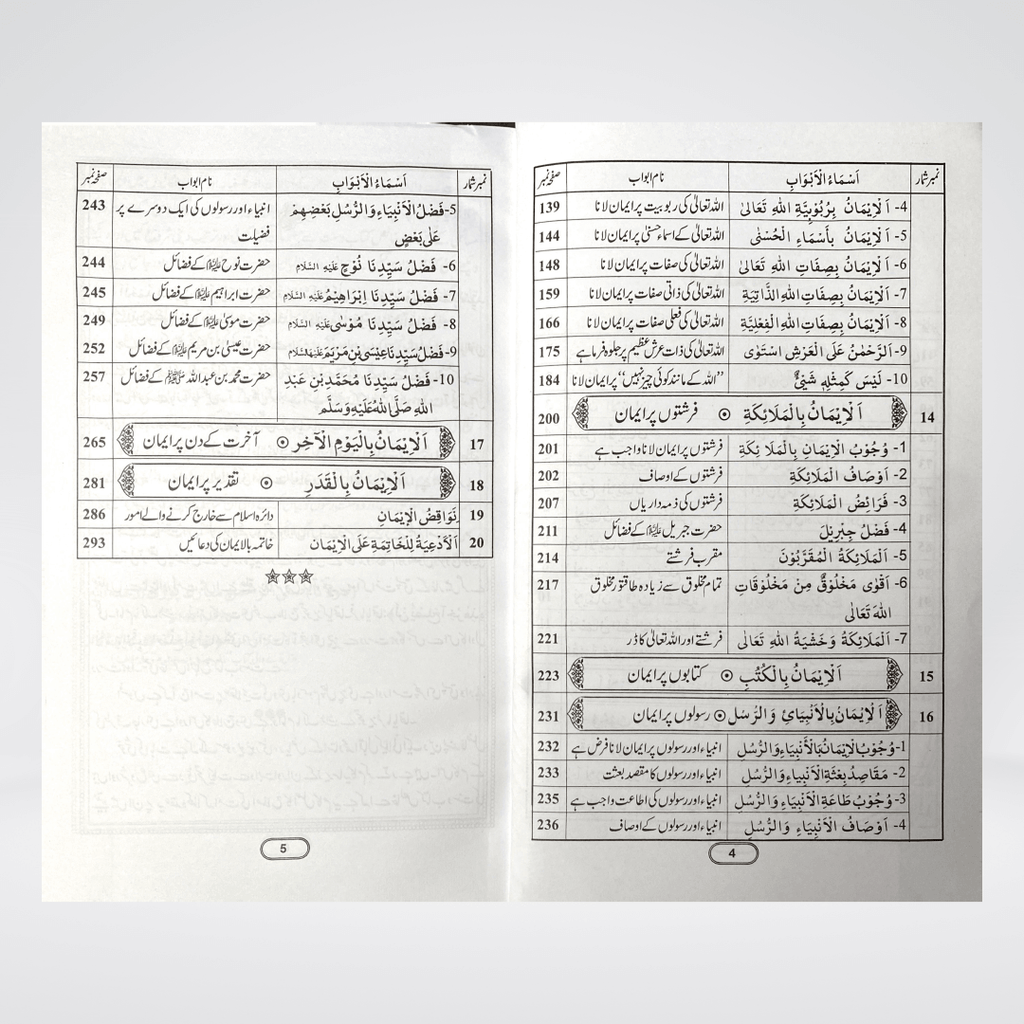 نمبر شمار اَسْمَاءُ الْاَبْوَابِ نام ابواب صفحہ نمبر
4- اَلْاِیْمَانُ بِرُبُوْبِیَّةِ اللهِ تَعَالیٰ اللہ تعالیٰ کی ربوبیت پر ایمان لانا 139
5- اَلْاِیْمَانُ بِأَسْمَاءِ الْحُسْنٰی اللہ تعالیٰ کے اسماء حسنیٰ پر ایمان لانا 144
6- اَلْاِیْمَانُ بِصِفَاتِ اللهِ تَعَالیٰ اللہ تعالیٰ کی صفات پر ایمان لانا 148
7- اَلْاِیْمَانُ بِصِفَاتِ اللهِ الذَّاتِیَّةِ اللہ تعالیٰ کی ذاتی صفات پر ایمان لانا 159
8- اَلْاِیْمَانُ بِصِفَاتِ اللهِ الْفِعْلِیَّةِ اللہ تعالیٰ کی فعلی صفات پر ایمان لانا 166
9- اَلرَّحْمٰنُ عَلَی الْعَرْشِ اسْتَوٰی اللہ تعالیٰ کی ذات عرش عظیم پر جلوہ فرما ہے 175
10- لَیْسَ کَمِثْلِهٖ شَیْئٌ ’’اللہ کے مانند کوئی چیز نہیں‘‘ پر ایمان لانا 184
14 اَلْاِیْمَانُ بِالْمَلَائِکَةِ ⊙ فرشتوں پر ایمان 200
1- وُجُوْبُ الْاِیْمَانِ بِالْمَلَائِکَةِ فرشتوں پر ایمان لانا واجب ہے 201
2- اَوْصَافُ الْمَلَائِکَةِ فرشتوں کے اوصاف 202
3- فَرَائِضُ الْمَلَائِکَةِ فرشتوں کی ذمہ داریاں 207
4- فَضْلُ جِبْرِیْلَ حضرت جبریل علیہ السلام کے فضائل 211
5- اَلْمَلَائِکَةُ الْمُقَرَّبُوْنَ مقرب فرشتے 214
6- اَقْوٰی مَخْلُوْقٌ مِنْ مَخْلُوْقَاتِ تمام مخلوق سے زیادہ طاقتور مخلوق 217
اللهِ تَعَالٰی
7- اَلْمَلَائِکَةُ وَخَشْیَةُ اللهِ تَعَالٰی فرشتے اور اللہ تعالیٰ کا ڈر 221
15 اَلْاِیْمَانُ بِالْکُتُبِ ⊙ کتابوں پر ایمان 223
16 اَلْاِیْمَانُ بِالْاَنْبِیَائِ وَالرُّسُلِ ⊙ رسولوں پر ایمان 231
1- وُجُوْبُ الْاِیْمَانِ بِالْاَنْبِیَاءِ وَالرُّسُلِ انبیاء اور رسولوں پر ایمان لانا فرض ہے 232
2- مَقَاصِدُ بِعْثَةِ الْاَنْبِیَاءِ وَالرُّسُلِ انبیاء اور رسولوں کا مقصد بعثت 233
3- وُجُوْبُ طَاعَةِ الْاَنْبِیَاءِ وَالرُّسُلِ انبیاء اور رسولوں کی اطاعت واجب ہے 235
4- اَوْصَافُ الْاَنْبِیَاءِ وَالرُّسُلِ انبیاء اور رسولوں کے اوصاف 236
4
نمبر شمار اَسْمَاءُ الْاَبْوَابِ نام ابواب صفحہ نمبر
5- فَضْلُ الْاَنْبِیَاءِ وَالرُّسُلِ بَعْضِهِمْ انبیاء اور رسولوں کی ایک دوسرے پر 243
عَلٰی بَعْضٍ فضیلت
6- فَضْلُ سَیِّدِنَا نُوْحٍ عَلَیْهِ السَّلَام حضرت نوح علیہ السلام کے فضائل 244
7- فَضْلُ سَیِّدِنَا اِبْرَاهِیْمُ عَلَیْهِ السَّلَام حضرت ابراہیم علیہ السلام کے فضائل 245
8- فَضْلُ سَیِّدِنَا مُوْسٰی عَلَیْهِ السَّلَام حضرت موسیٰ علیہ السلام کے فضائل 249
9- فَضْلُ سَیِّدِنَا عِیْسَی بْنِ مَرْیَمَ عَلَیْهِ السَّلَام حضرت عیسیٰ بن مریم علیہ السلام کے فضائل 252
10- فَضْلُ سَیِّدِنَا مُحَمَّدِ بْنِ عَبْدِ حضرت محمد بن عبداللہ ﷺ کے فضائل 257
اللهِ صَلَّی اللهُ عَلَیْهِ وَسَلَّم
17 اَلْاِیْمَانُ بِالْیَوْمِ الْآخِرِ ⊙ آخرت کے دن پر ایمان 265
18 اَلْاِیْمَانُ بِالْقَدَرِ ⊙ تقدیر پر ایمان 281
19 نَوَاقِضُ الْاِیْمَانِ دائرہ اسلام سے خارج کرنے والے امور 286
20 اَلْاَدْعِیَةُ لِلْخَاتِمَةِ عَلَی الْاِیْمَان خاتمہ بالایمان کی دعائیں 293
5